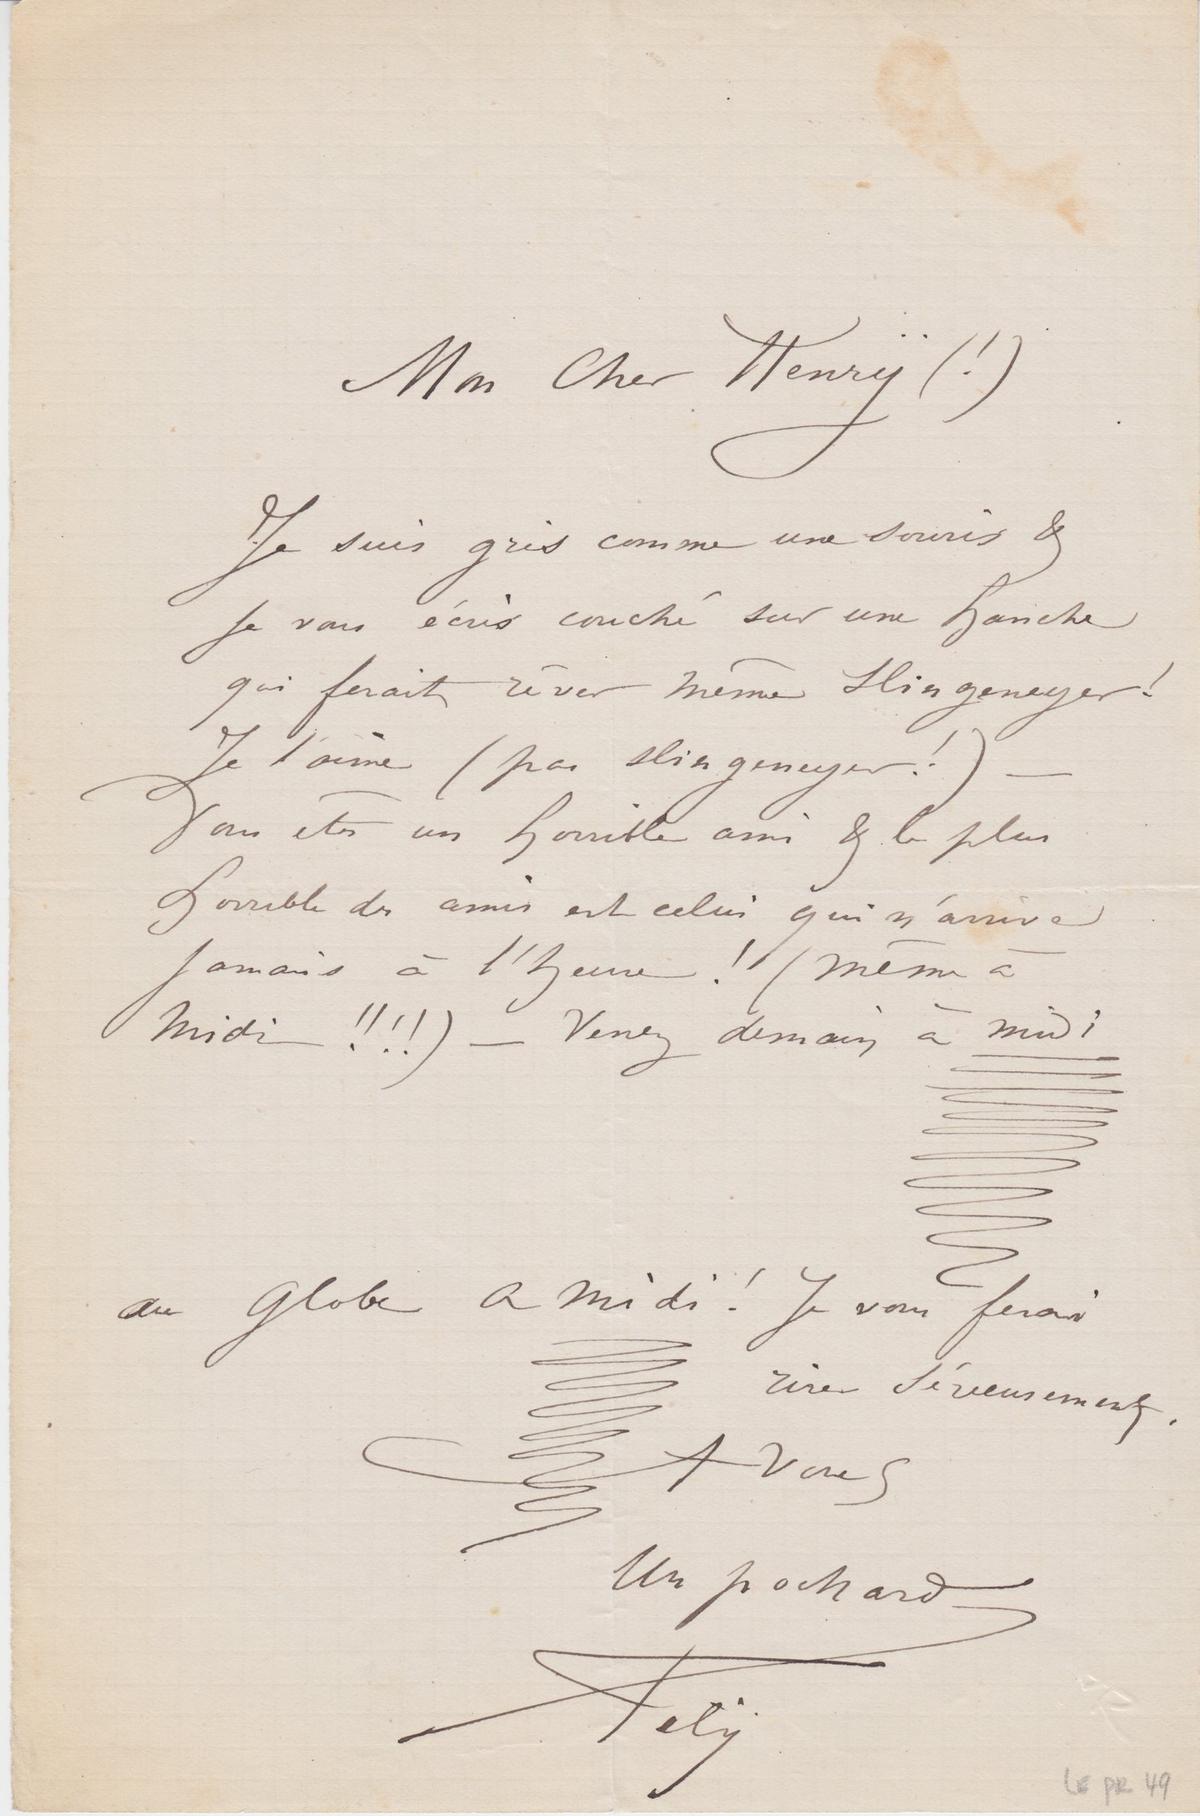 Mon Cher Henrÿ (!)
Je suis gris comme une souris &
je vous écris couché sur une hanche
qui ferait rêver même Slingeneyer!
Je l'aime (pas Slingeneyer!) —
Vous êtes un horrible ami & le plus
horrible des amis est celui qui n'arrive
jamais à l'heure! (même à
midi !!!!) — Venez demain à midi
au Globe a midi! Je vous ferai
rire sérieusement.
A vous
Un pochard
Fély
LE PR 49